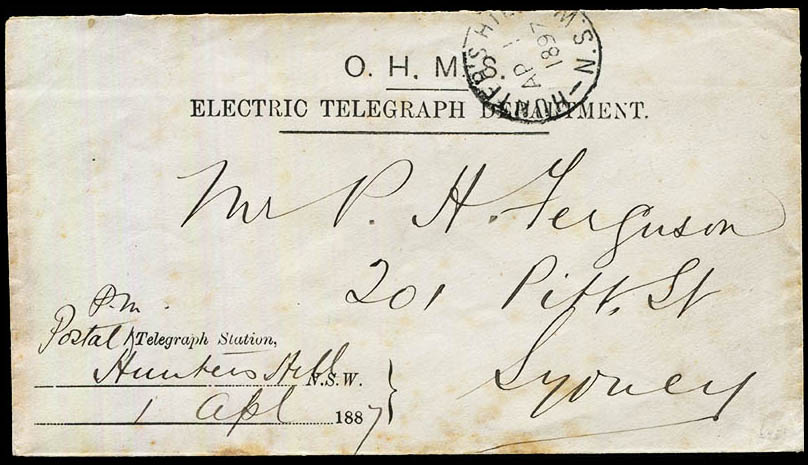 HUNTER'S HILL N.S.W
AP 1
1897
O. H. M. S.
ELECTRIC TELEGRAPH DEPARTMENT.
Mr P. H. Ferguson
201 Pitt. St
Sydney
P.M.
Postal Telegraph Station,
Hunters Hill N.S.W.
1 Apl 1887